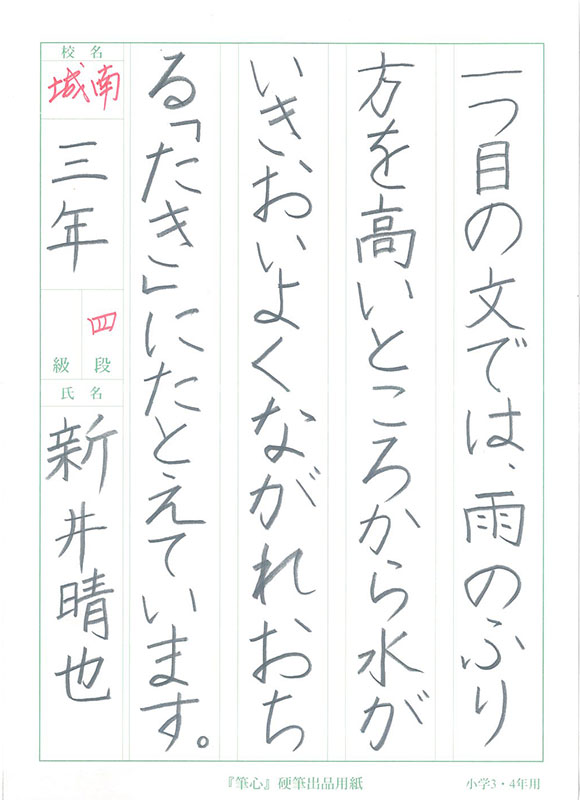 一つ目の文では、雨のふり
方を高いところから水が
いきおいよくながれおち
る「たき」にたとえています。
校名
城南
三年
四
級 段
氏名
新井晴也
『筆心』硬筆出品用紙
小学3・4年用